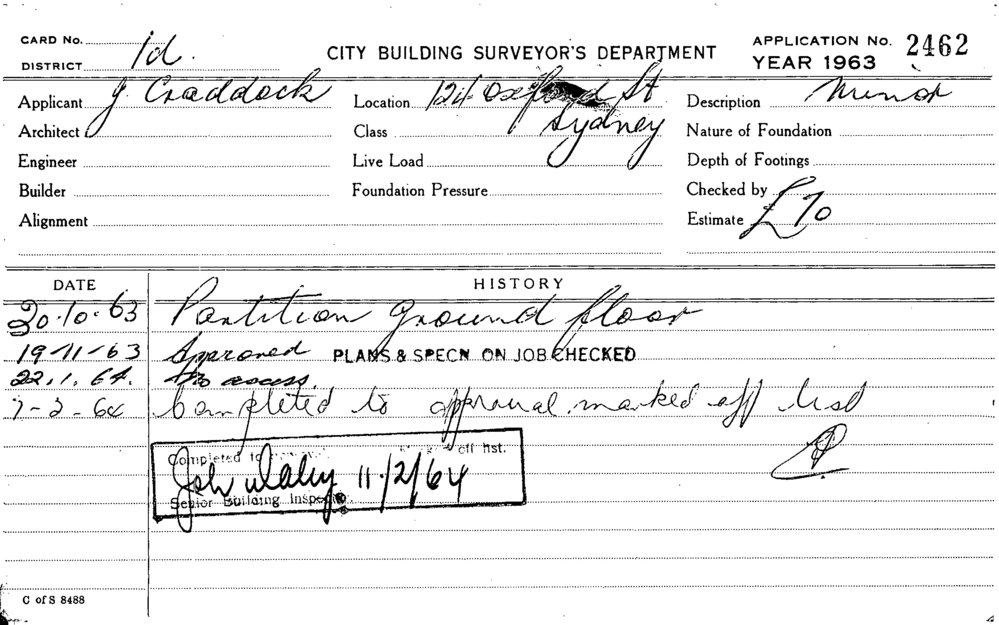 CARD No.
DISTRICT 1d.
CITY BUILDING SURVEYOR'S DEPARTMENT
APPLICATION No. 2462
YEAR 1963
Applicant J Craddock
Location 124 Oxford St
Description Minor
Architect
Class Sydney
Nature of Foundation
Engineer
Live Load
Depth of Footings
Builder
Foundation Pressure
Checked by
Alignment
Estimate £70
DATE HISTORY
30.10.63 Partition Ground floor
19-11-63 Approved PLANS & SPECN ON JOB CHECKED
22.1.64. No access.
7-2-64 Completed to approval marked off list
Completed to off list.
John Daley 11/2/64
Senior Building Inspector
C of S 8488